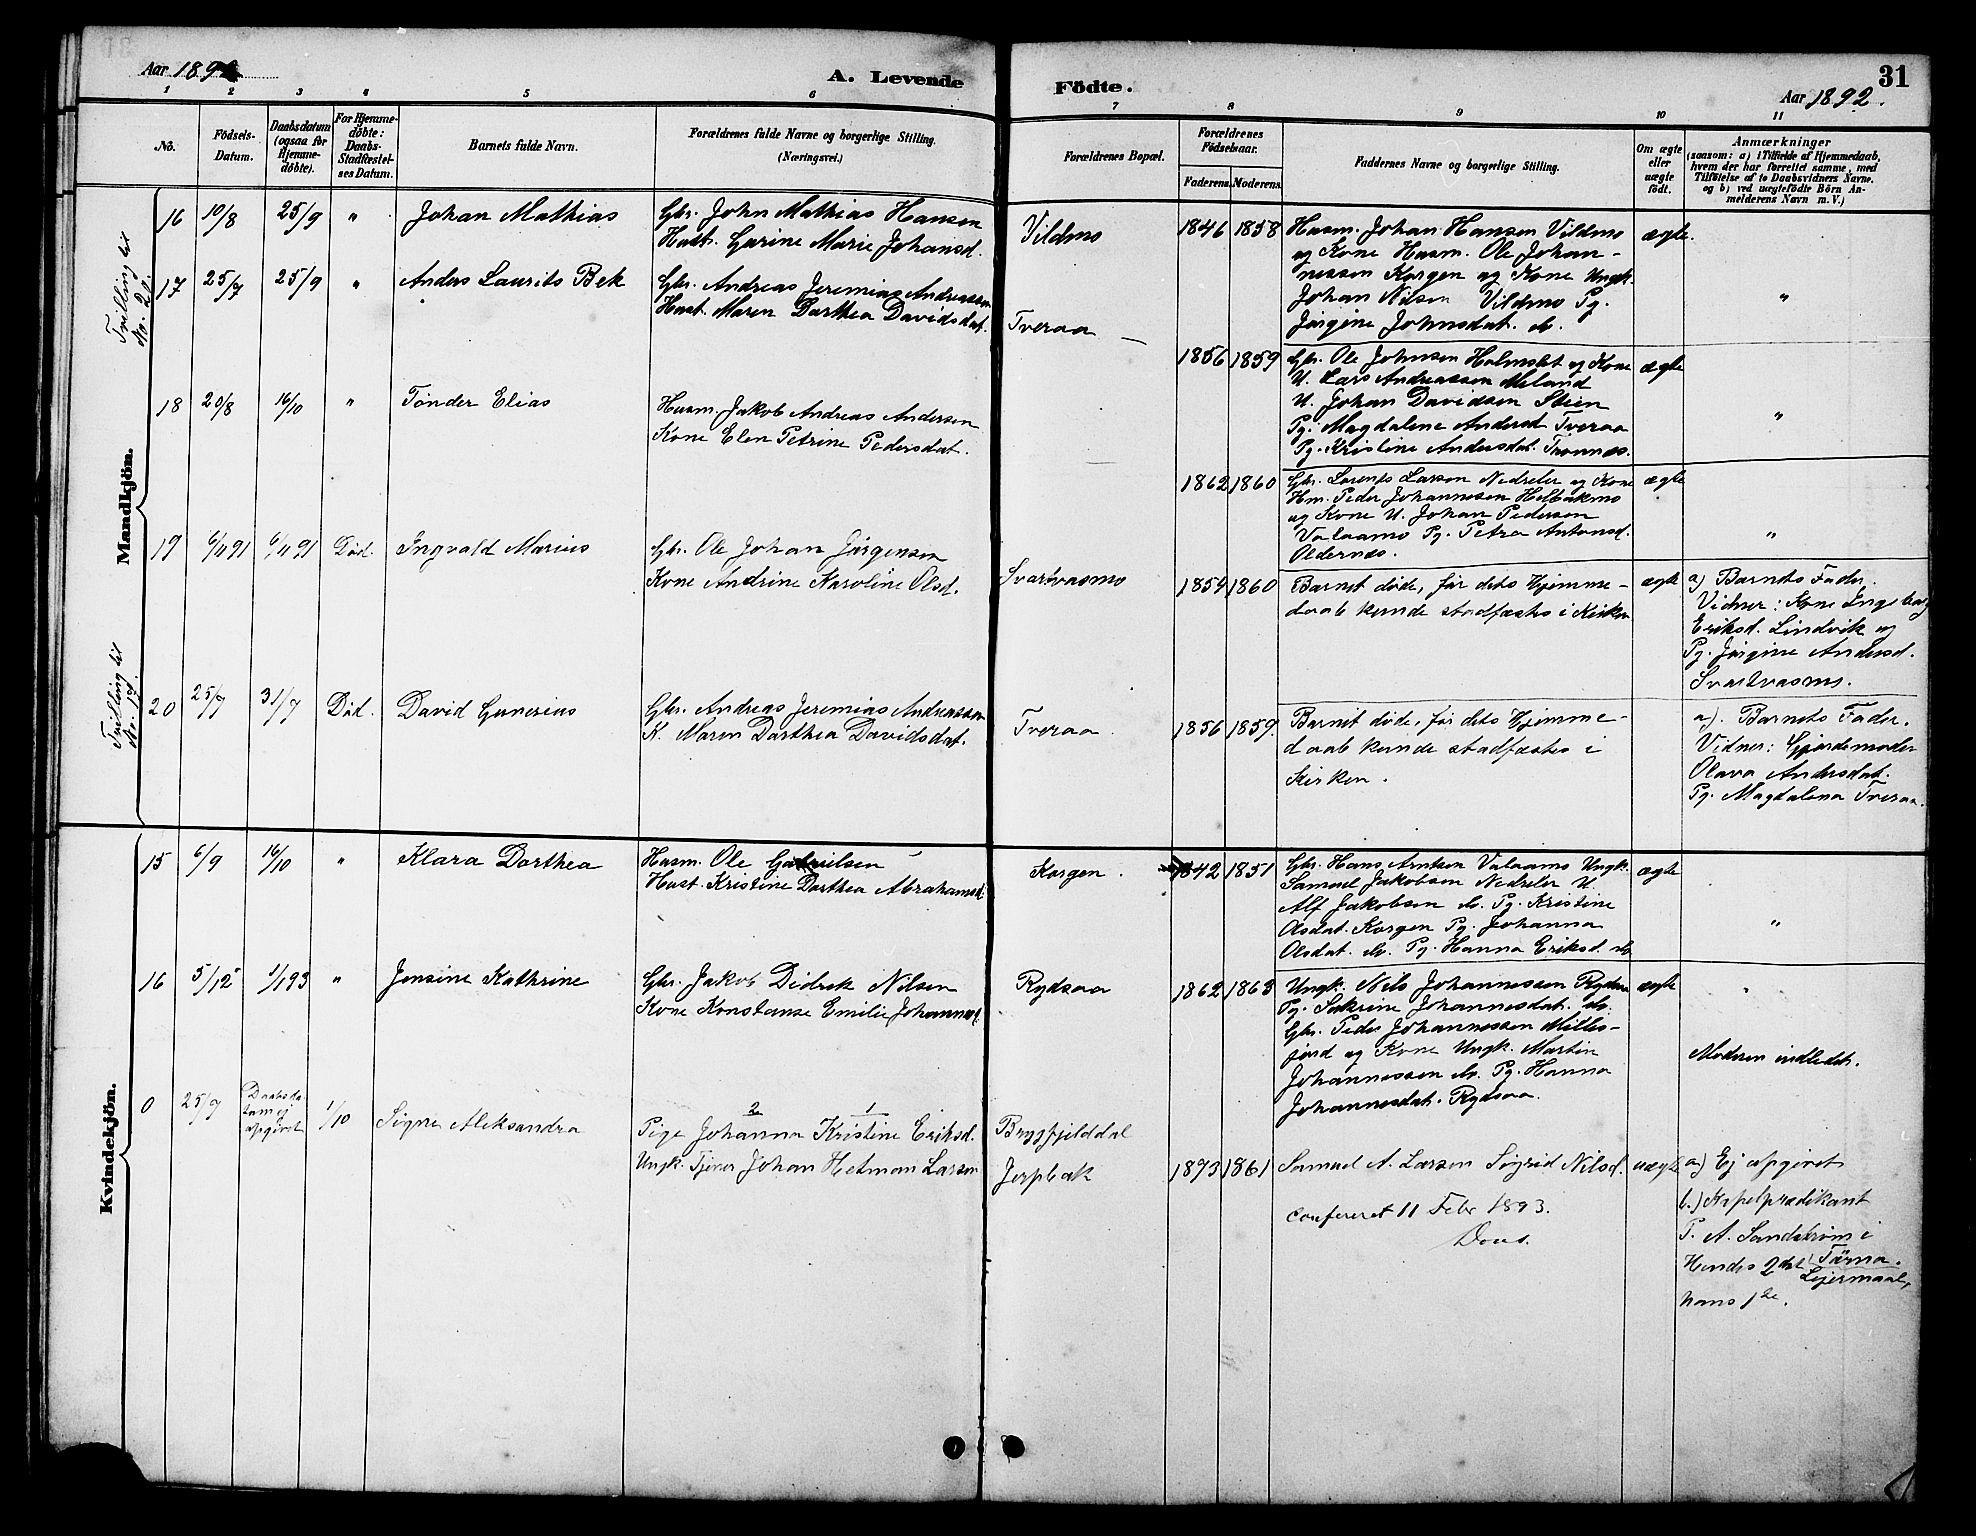 Aar 1892
A. Levende
Födte.
Aar 1892.
31
1 2 3 4 5 6 7 8 9 10 11
No.
Födsels-
Datum.
Daabsdatum
(ogsaa for
Hjemme-
døbte).
For Hjemme-
døbte:
Daabs-
Stadfæstel-
ses Datum.
Barnets fulde Navn.
Forældrenes fulde Navne og borgerlige Stilling.
(Næringsvei.)
Forældrenes Bopæl.
Forældrenes
Födselsaar.
Faderens. Moderens.
Faddernes Navne og borgerlige Stilling.
Om ægte
eller
uægte
født.
Anmærkninger
(saasom: a) i Tilfælde af Hjemmedaab,
hvem der har forrettet samme, med
Tilføielse af to Daabsvidners Navne.
og b) ved uægtefödte Börn An-
melderens Navn m. V.)
Mandkjön.
16 10/8 25/9 " Johan Mathias
Gbr. John Mathias Hansen
Hustr. Gurine Marie Johansd.
Vildmo
1846 1858
Husm. Johan Hansen Vildmo
og Kone Husm. Ole Johan-
nessen Korgen og Kone Ungk.
Johan Nilsen Vildmo Pg.
Jørgine Johnsdat. do.
ægte.
"
Tvilling til
No. 20.
17 25/7 25/9 " Anders Laurits Bek
Gbr. Andreas Jeremias Andreassen
Hust. Maren Dorthea Davidsdat.
Tveraa
1856 1859
Gbr. Ole Johnsen Holmslet og Kone
U. Lars Andreassen Meland
U. Johan Davidsen Stien
Pg. Magdalene Andersd. Tveraa
Pg. Kristine Andersdat.
ægte
"
18 20/8 16/10 " Tønder Elias
Husm. Jakob Andreas Andersen
Kone Elen Petrine Pedersdat.
1862 1860
Gbr. Lorents Larsen Nedreler og Kone
Hm. Peder Johannesen
og Kone U. Johan Pedersen
Valaamo Pg. Petra Antonsd.
Oldernes.
ægte
"
19 6/11 91 6/11 91 Död. Ingvald Marius
Gbr. Ole Johan Jørgensen
Kone Andrine Karoline Olsd.
Svartvasmo
1859 1860
Barnet døde, før dets Hjemme-
daab kunde stadfæstes i Kirken
ægte
a) Barnets Fader.
Vidner: Kone Ingeborg
Eriksd. Lindvik og
Pg. Jørgine Andersd.
Svartvasmo.
Tvilling til
No. 17.
20 25/7 31/7 Död. David Gunerius
Gbr. Andreas Jeremias Andreassen
K. Maren Dorthea Davidsdat.
Tveraa.
1856 1859.
Barnet døde, før dets Hjemme-
daab kunde stadfæstes i
Kirken.
a). Barnets Fader.
Vidner: Gjordemoder
Olava Andersdat.
Pg. Magdalena Tveraa.
Kvindekjön.
15 6/9 16/10 " Klara Dorthea
Husm. Ole Gabrielsen
Hust. Kristine Dorthea Abrahamsd.
Korgen.
1842 1851
Gbr. Hans Arntsen Valaamo Ungk.
Samuel Jakobsen Nedreler U.
Alf Jakobsen do. Pg. Kristine
Olsdat. Korgen Pg. Johanna
Olsdat. do. Pg. Hanna Eriksd. do
ægte
"
16 5/12 1/1 93 " Jensine Kathrine
Gbr. Jakob Didrek Nilsen
Kone Konstanse Emilie Johannesd.
Rydsaa
1862 1863
Ungk. Nils Johannessen Rydsaa
Pg. Sakrine Johannesdat. do.
Gbr. Peder Johannessen Millis-
jord og Kone Ungk. Martin
Johannessen do. Pg. Hanna
Johannesdat. Rydsaa.
ægte
"
Moderen indledet.
0 25/7
Daabsda-
tum ej
opgivet
1/10 Signe Aleksandra
2 1
Pige Johanna Kristine Eriksd.
Ungk. Tjener Johan Hetman Larsen
Brygfjelddal
Jerpbak
1873 1861
Samuel A. Larsen Sigrid Nilsd.
Confereret 11 Febr 1893.
uægte
a) Ej opgivet
b.) Kapelprædikant
P. A. Sandström i
Tärna.
Hendes 2det Lejermaal,
hans 1ste.